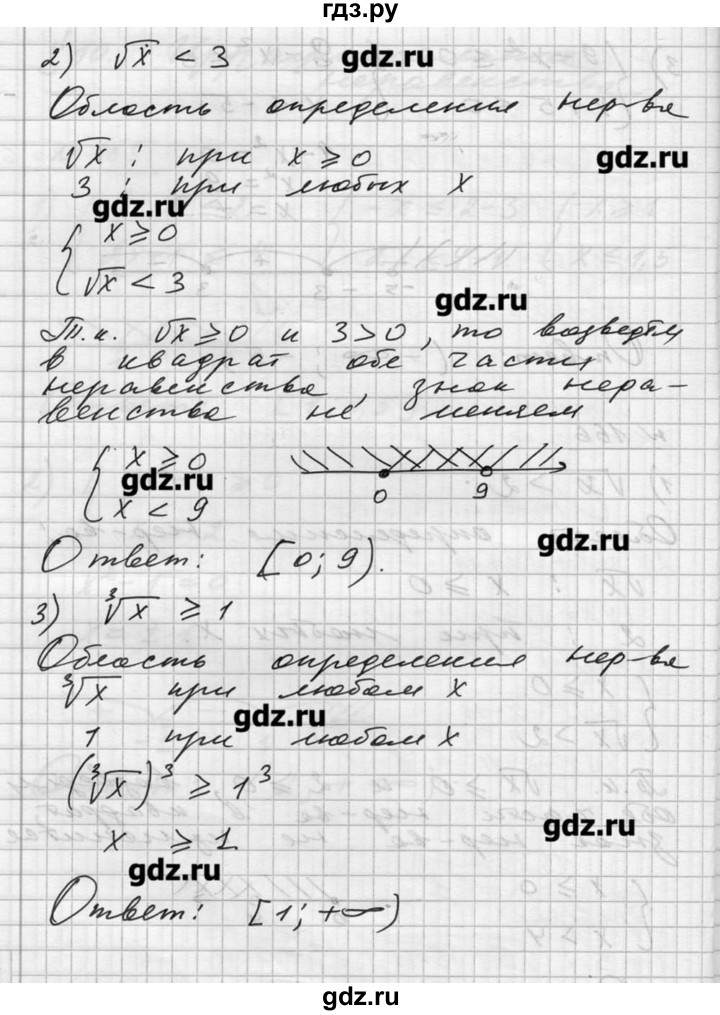 гдз.ру
2) √x < 3
gdz.ru
Область определения нер-ва
√x : при x ⩾ 0
gdz.ru
3 : при любых x
gdz.ru
{ x ⩾ 0
√x < 3
gdz.ru
Т.к. √x ⩾ 0 и 3>0, то возведём
в квадрат обе части
неравенства, знак нера-
венства не меняем
{ x ⩾ 0
gdz.ru
x < 9
0 9
gdz.ru
Ответ: [0; 9).
3) ∛x ⩾ 1
Область определения нер-ва
∛x при любом x
gdz.ru
1 при любом x
(∛x)³ ⩾ 1³
gdz.ru
x ⩾ 1
gdz.ru
Ответ: [1; +∞)
gdz.ru